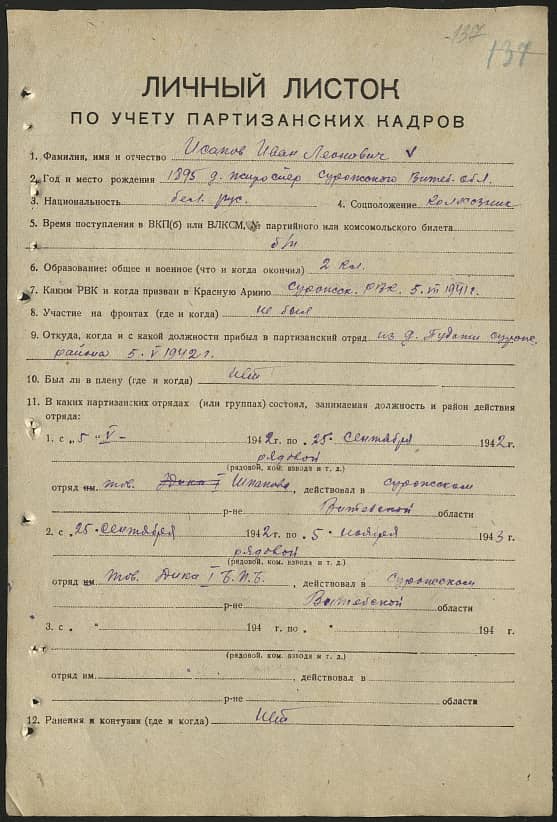 137
137
ЛИЧНЫЙ ЛИСТОК
ПО УЧЕТУ ПАРТИЗАНСКИХ КАДРОВ
1. Фамилия, имя и отчество Исаков Иван Леонович
2. Год и место рождения 1895 д. Суражского Витеб. обл.
3. Национальность бел. рус. 4. Соцположение колхозник
5. Время поступления в ВКП(б) или ВЛКСМ, № партийного или комсомольского билета
б/п
6. Образование: общее и военное (что и когда окончил) 2 кл.
7. Каким РВК и когда призван в Красную Армию Суражск. РВК. 5. VII 1941г.
8. Участие на фронтах (где и когда) не был
9. Откуда, когда и с какой должности прибыл в партизанский отряд из д.
района 5. V 1942 г.
10. Был ли в плену (где и когда) нет
11. В каких партизанских отрядах (или группах) состоял, занимаемая должность и район действия
отряда:
1. с „5 “ V - 1942 г. по „25“ сентября 1942 г.
рядовой
(рядовой, ком. взвода и т. д.)
отряд им. тов. Дика I Шпакова, действовал в Суражском
р-не Витебской области
2. с „25“ сентября 1942 г. по „5“ ноября 1943 г.
рядовой
(рядовой, ком. взвода и т. д.)
отряд им. тов. Дика I Б.П.Б., действовал в Суражском
р-не Витебской области
3. с „ “ 194 г. по „ “ 194 г.
(рядовой, ком. взвода и т. д.)
отряд им. , действовал в
р-не области
12. Ранения и контузии (где и когда) нет